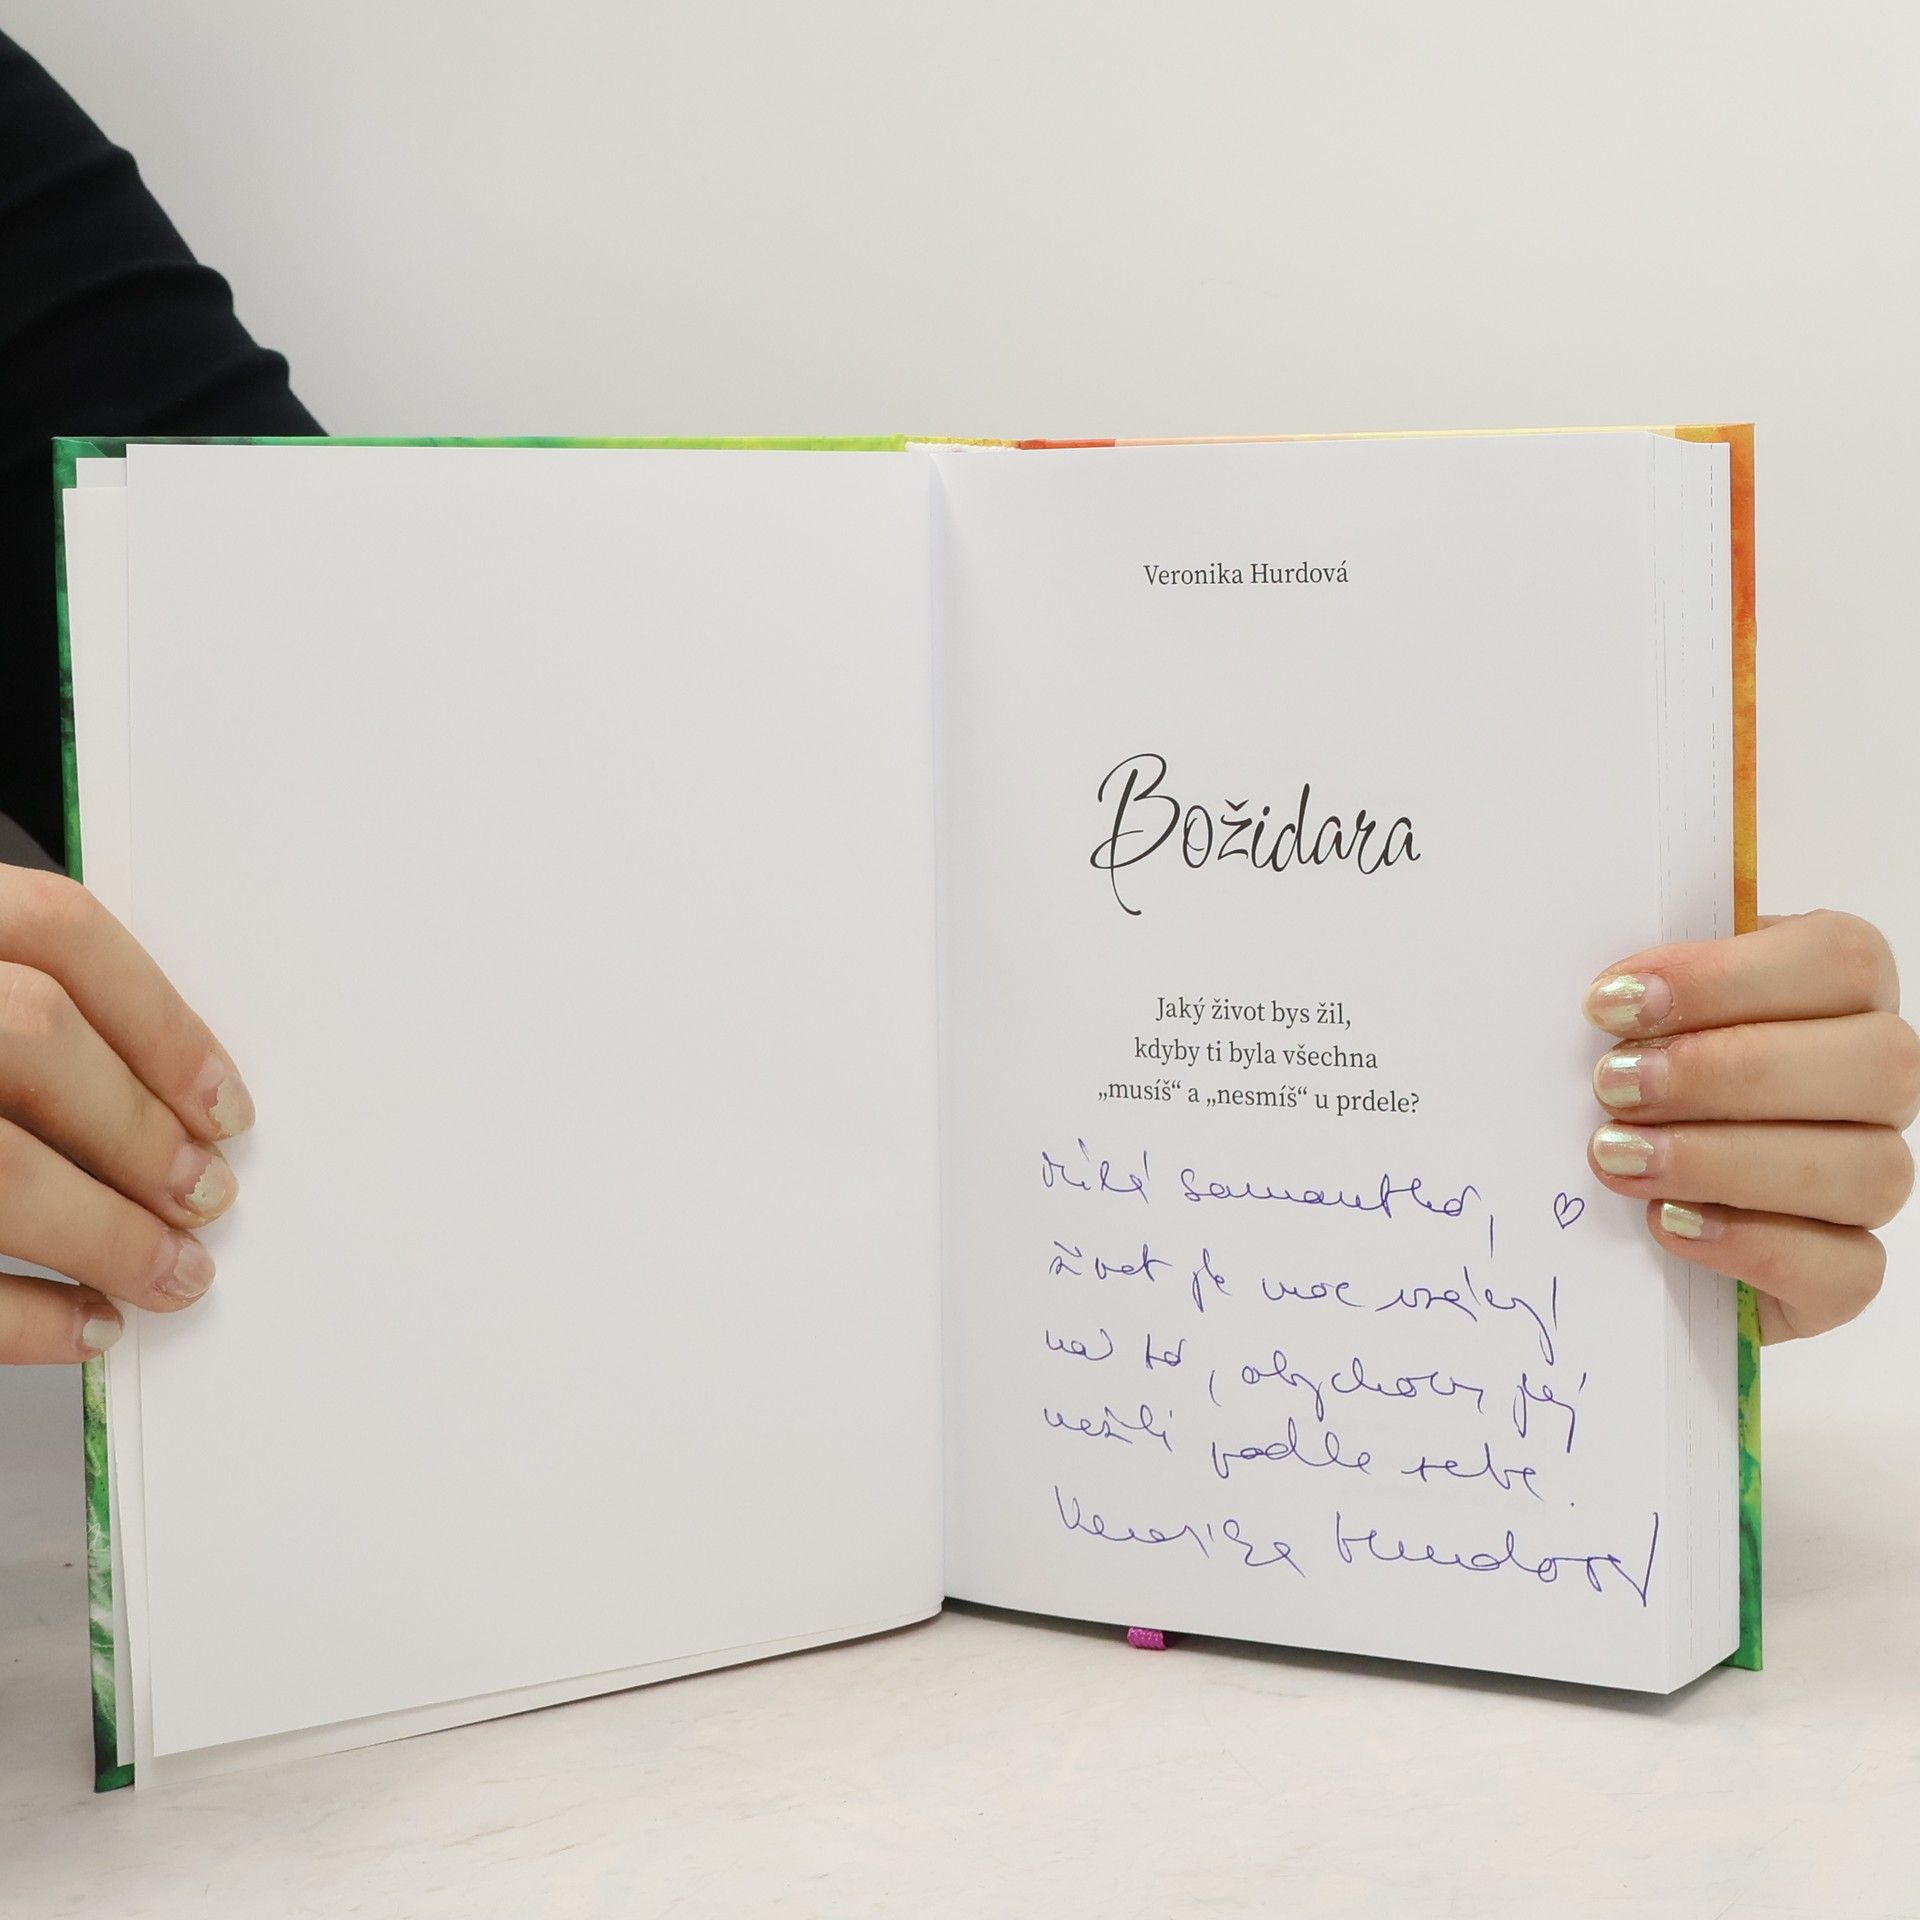 Veronika Hurdová
Božidara
Jaký život bys žil,
kdyby ti byla všechna
„musíš“ a „nesmíš“ u prdele?
Milá Samantho, ♡
život je moc vzácný
na to, abychom jej
nežili podle sebe.
Veronika Hurdová